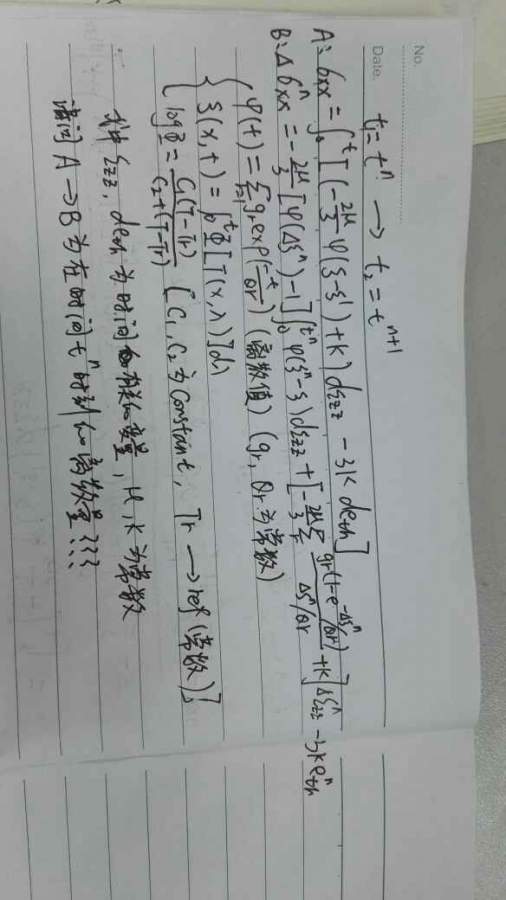 No.
Date.
t₁=tⁿ → t₂=tⁿ⁺¹
A: σxx = ∫₀ᵗ [(-2μ/3 φ(ξ-ξ')+K) dεzz - 3K deth]
B: Δσxxⁿ = -2μ/3 [φ(Δξⁿ)-1] ∫₀^tⁿ φ(ξⁿ-ξ) dεzz + [-2μ/3 Σ gr(1-e^(-Δξⁿ/θr)) / (Δξⁿ/θr) + K] Δεzzⁿ - 3Kethⁿ
{ φ(t) = Σ gr exp(-t/θr) (离散值) (gr, θr 为常数)
ξ(x,t) = ∫₀ᵗ Φ[T(x,λ)]dλ
logΦ = C₁(T-Tr) / C₂+(T-Tr) [C₁, C₂ 为 constant, Tr → ref (常数)]
其中 εzz, deth 为时间的有关变量, μ, K 为常数
请问 A → B 为在时间 tⁿ 时刻的离散量???